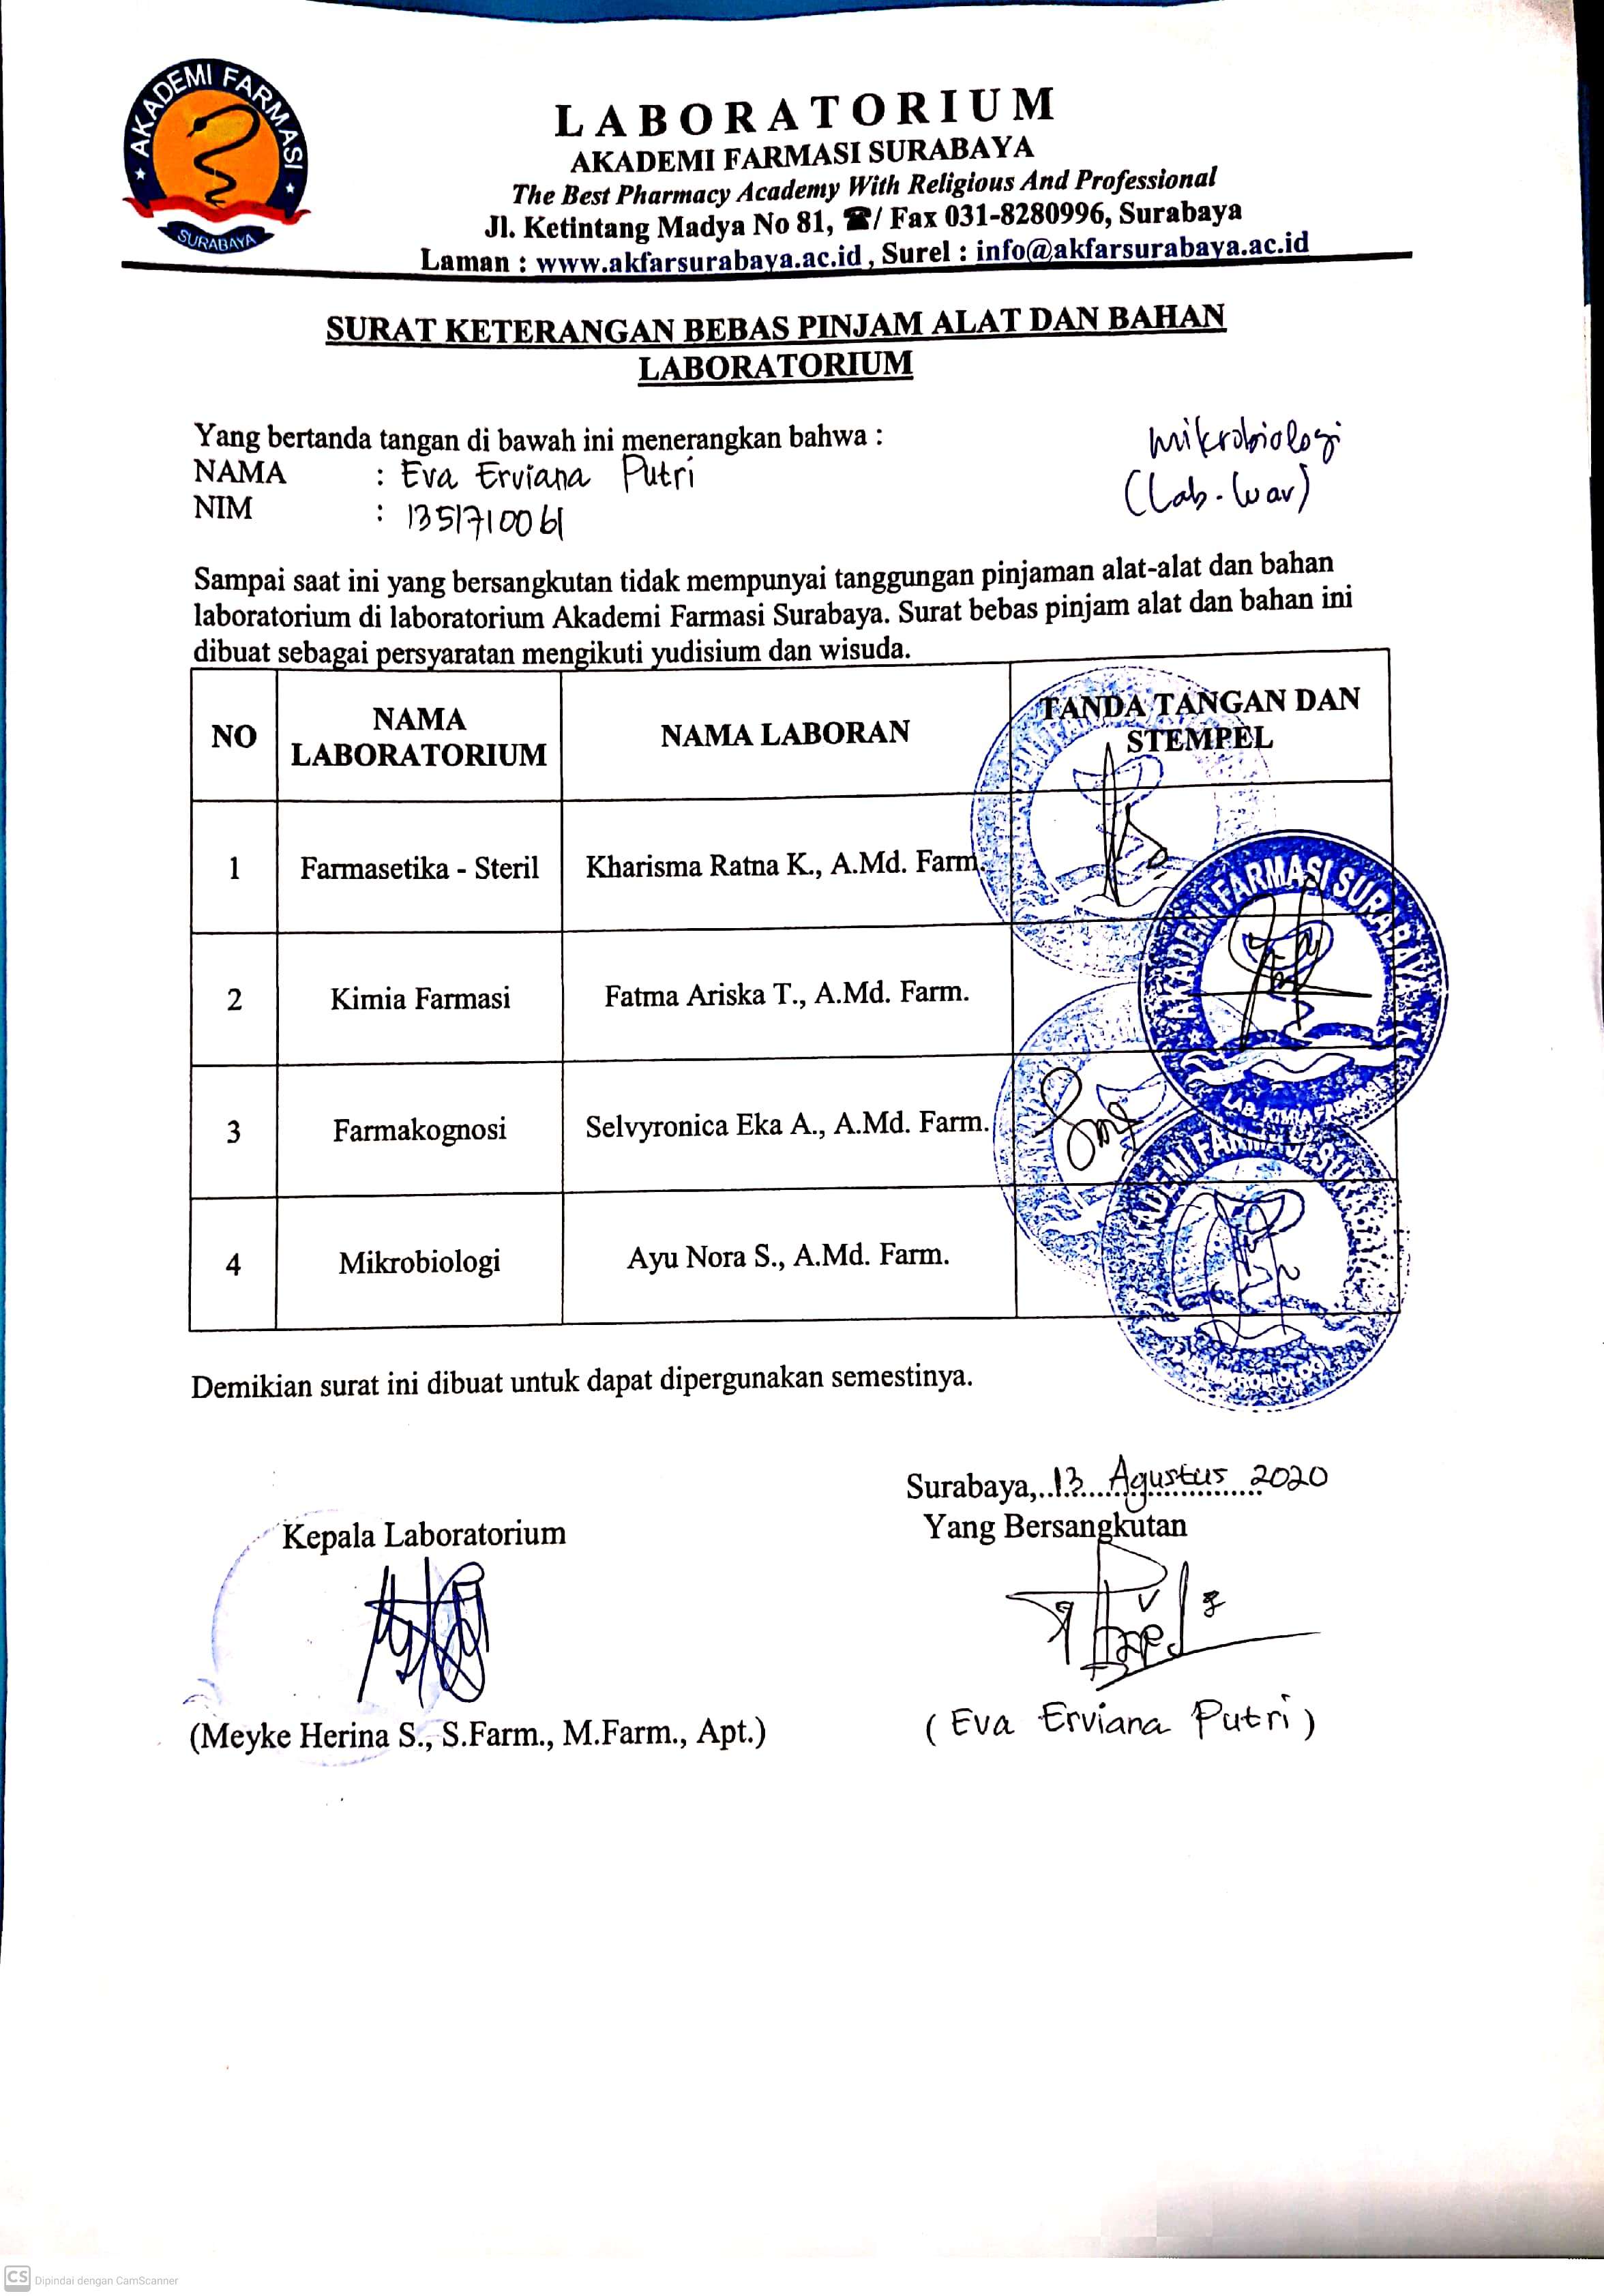 AKADEMI FARMASI
SURABAYA
LABORATORIUM
AKADEMI FARMASI SURABAYA
The Best Pharmacy Academy With Religious And Professional
Jl. Ketintang Madya No 81, ☎/ Fax 031-8280996, Surabaya
Laman : www.akfarsurabaya.ac.id , Surel : info@akfarsurabaya.ac.id
SURAT KETERANGAN BEBAS PINJAM ALAT DAN BAHAN
LABORATORIUM
Yang bertanda tangan di bawah ini menerangkan bahwa :
NAMA : Eva Erviana Putri
NIM : 1351710061
mikrobiologi
(Lab. luar)
Sampai saat ini yang bersangkutan tidak mempunyai tanggungan pinjaman alat-alat dan bahan
laboratorium di laboratorium Akademi Farmasi Surabaya. Surat bebas pinjam alat dan bahan ini
dibuat sebagai persyaratan mengikuti yudisium dan wisuda.
NO NAMA LABORATORIUM NAMA LABORAN TANDA TANGAN DAN STEMPEL
1 Farmasetika - Steril Kharisma Ratna K., A.Md. Farm.
2 Kimia Farmasi Fatma Ariska T., A.Md. Farm.
3 Farmakognosi Selvyronica Eka A., A.Md. Farm.
4 Mikrobiologi Ayu Nora S., A.Md. Farm.
AKADEMI FARMASI SURABAYA
LAB. KIMIA FARMASI
AKADEMI FARMASI SURABAYA
MIKROBIOLOGI
Demikian surat ini dibuat untuk dapat dipergunakan semestinya.
Surabaya, 13 Agustus 2020
Kepala Laboratorium
Yang Bersangkutan
(Meyke Herina S., S.Farm., M.Farm., Apt.)
( Eva Erviana Putri )
CS Dipindai dengan CamScanner